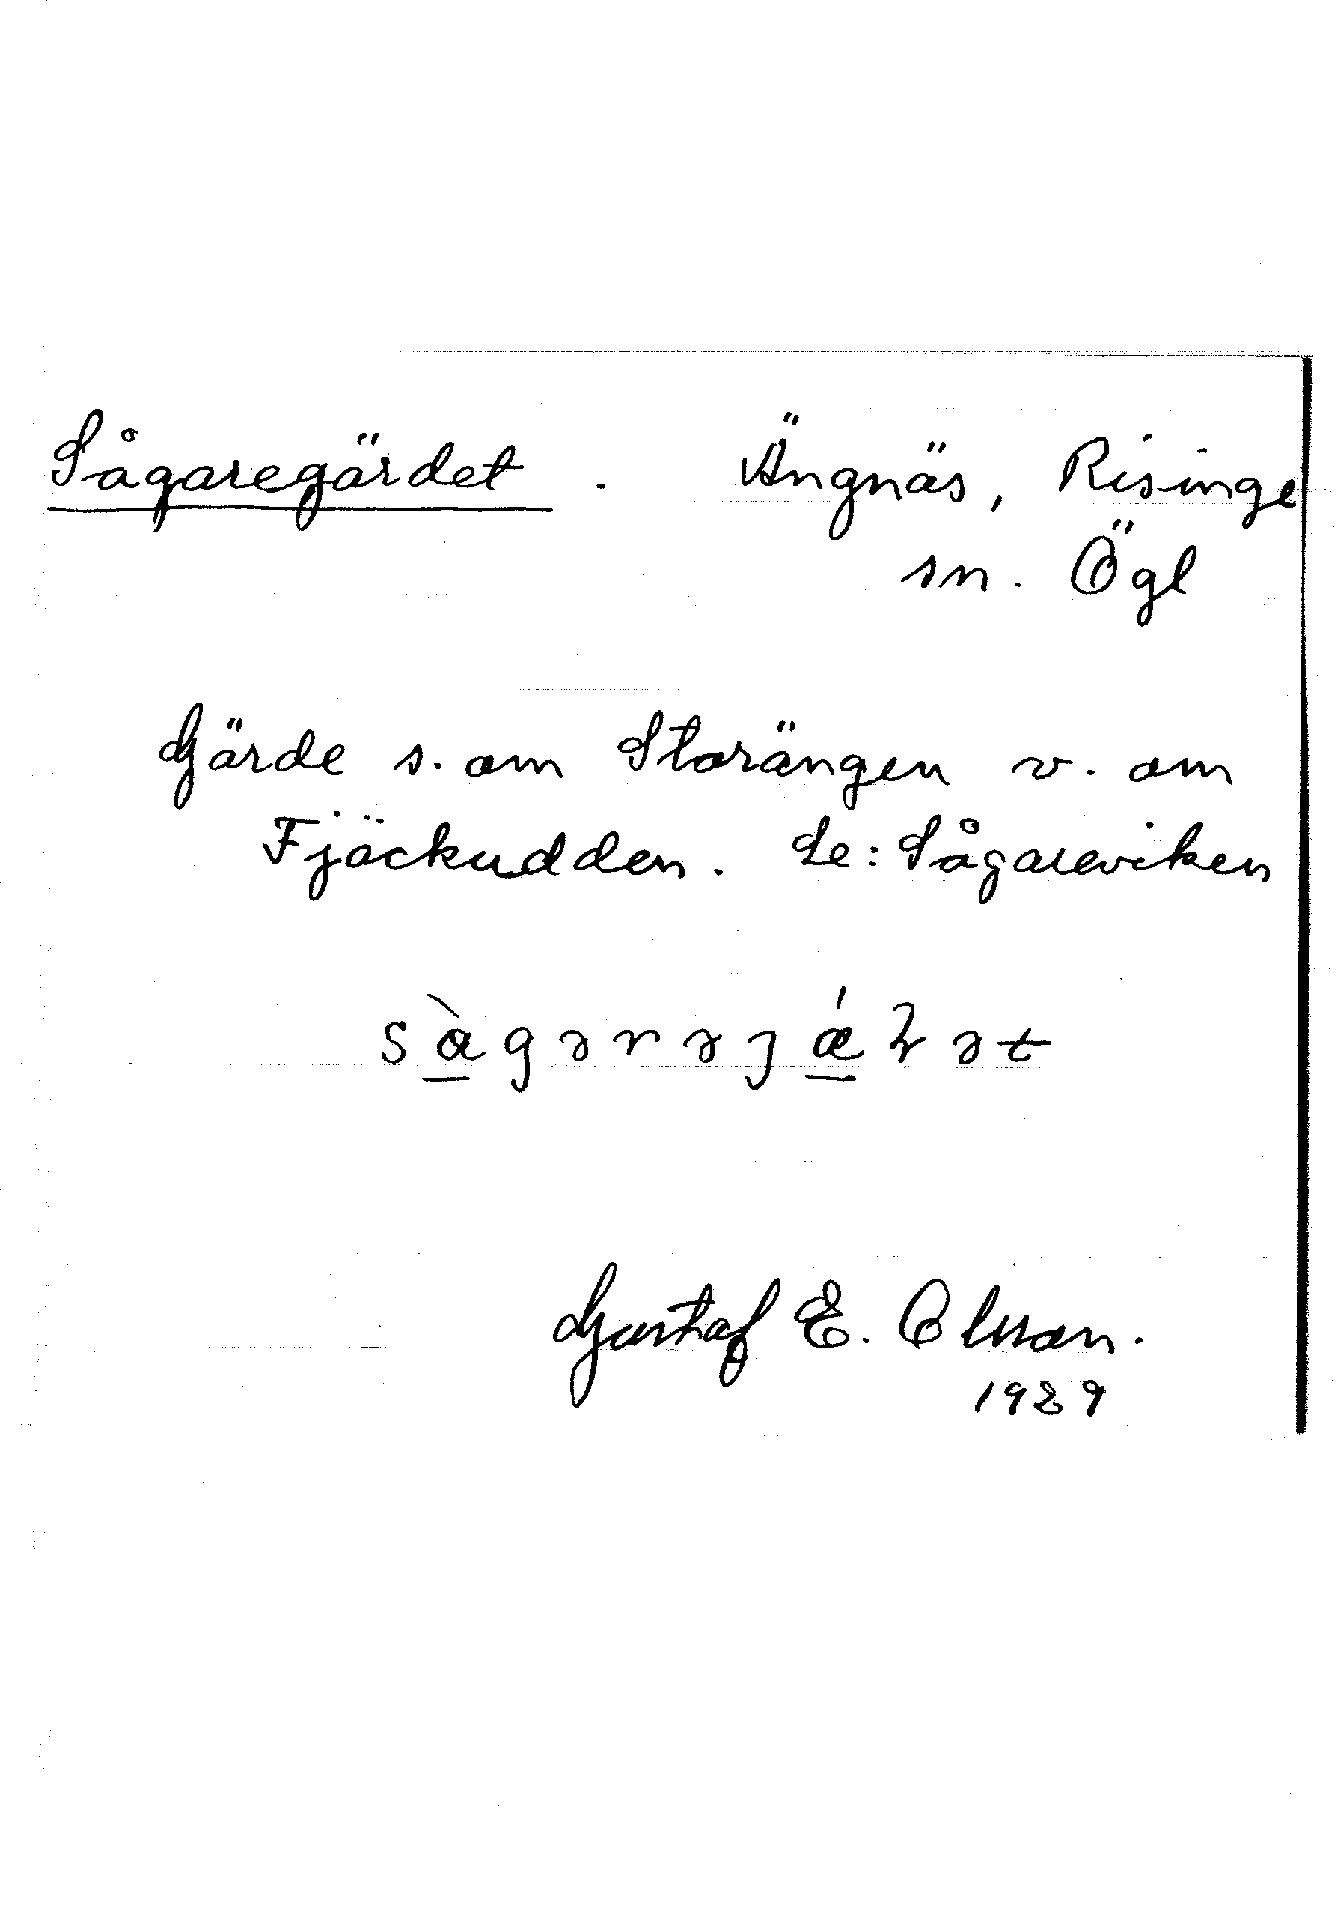 Sågaregärdet. Ängnäs, Risinge
sn. Ögl
Gärde s. om Storängen v. om
Fjäckudden. Se: Sågareviken
Gustaf E. Olsson.
1929